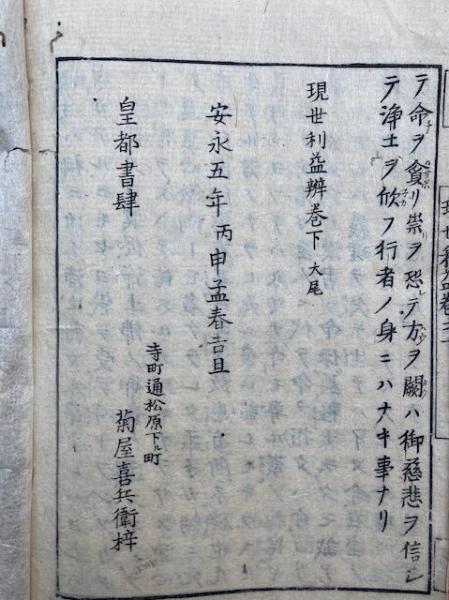 テ命ヲ貪リ祟ヲ恐レテ方ヲ闕ハ御慈悲ヲ信シ
テ浄土ヲ欣フ行者ノ身ニハナキ事ナリ
現世利益辨巻下 大尾
安永五年丙申孟春吉旦
皇都書肆
寺町通松原下ル町
菊屋喜兵衛梓
現世利益巻下